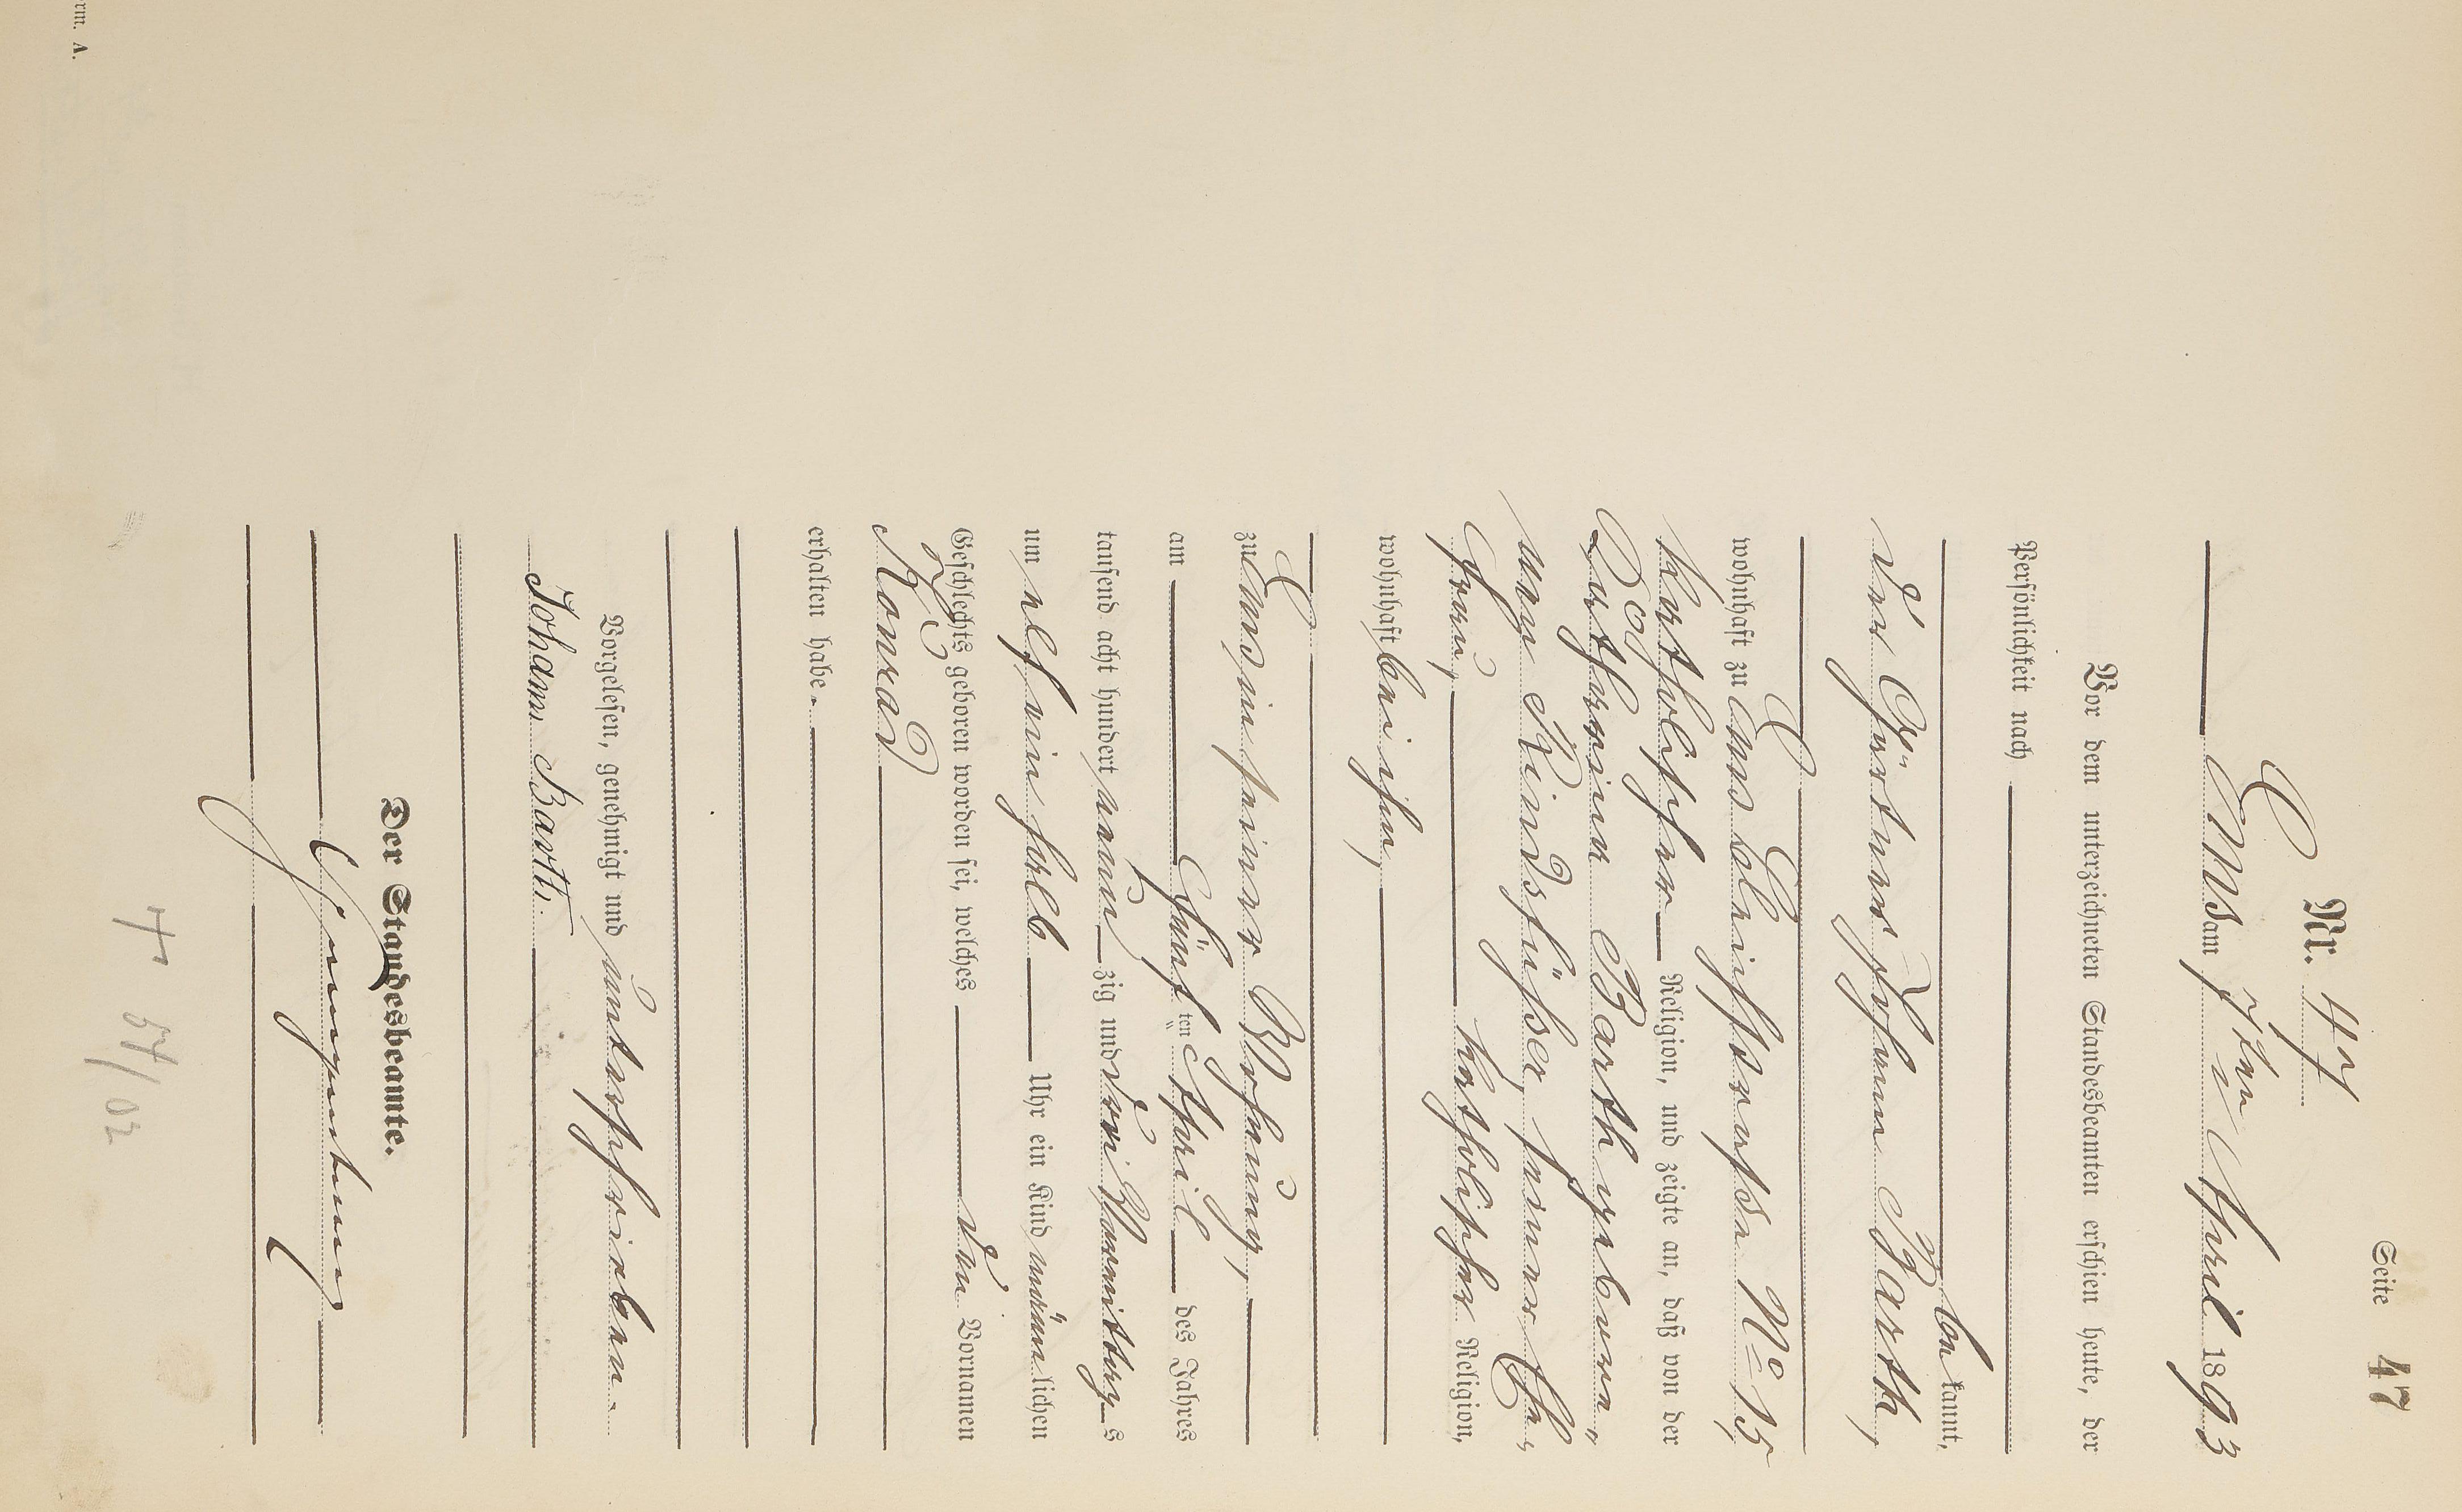 Seite 47
Nr. 47
Ems am 7ten April 1893
Vor dem unterzeichneten Standesbeamten erschien heute, der
Persönlichkeit nach
bekannt,
der Gärtner Johann Barth,
wohnhaft zu Ems Bleichstraße No 15
katholischer Religion, und zeigte an, daß von der
Katharina Barth gebore-
nen Kindsfüßer, seiner Ehe-
frau, katholischer Religion,
wohnhaft bei ihm,
zu Ems in seiner Wohnung,
am Fünften April des Jahres
tausend acht hundert neunzig und drei Vormittags
um elf ein halb Uhr ein Kind männlichen
Geschlechts geboren worden sei, welches den Vornamen
Konrad
erhalten habe.
Vorgelesen, genehmigt und unterschrieben.
Johann Barth.
Der Standesbeamte.
T 54/02
rm. A.